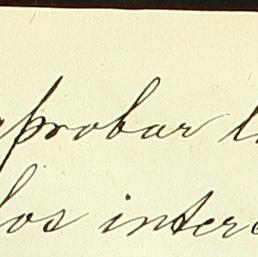 aprobar l
los inter